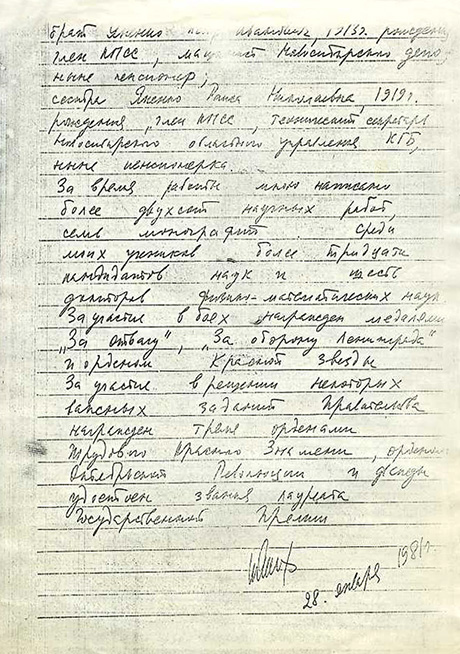 брат Яненко Николаевич, 1913г. рождения,
член КПСС, машинист Новосибирского депо,
ныне пенсионер;
сестра Яненко Раиса Николаевна, 1919г.
рождения, член КПСС, технический секретарь
Новосибирского областного управления КГБ,
ныне пенсионерка.
За время работы мною написано
более двухсот научных работ,
семь монографий. Среди
моих учеников более тридцати
кандидатов наук и шесть
докторов физико-математических наук
За участие в боях награжден медалями
„За отвагу", „За оборону Ленинграда"
и орденом Красной Звезды
За участие в решении некоторых
важных заданий Правительства
награжден тремя орденами
Трудового Красного Знамени, орденом
Октябрьской Революции и дважды
удостоен звания лауреата
Государственной Премии
28 января 1981г.